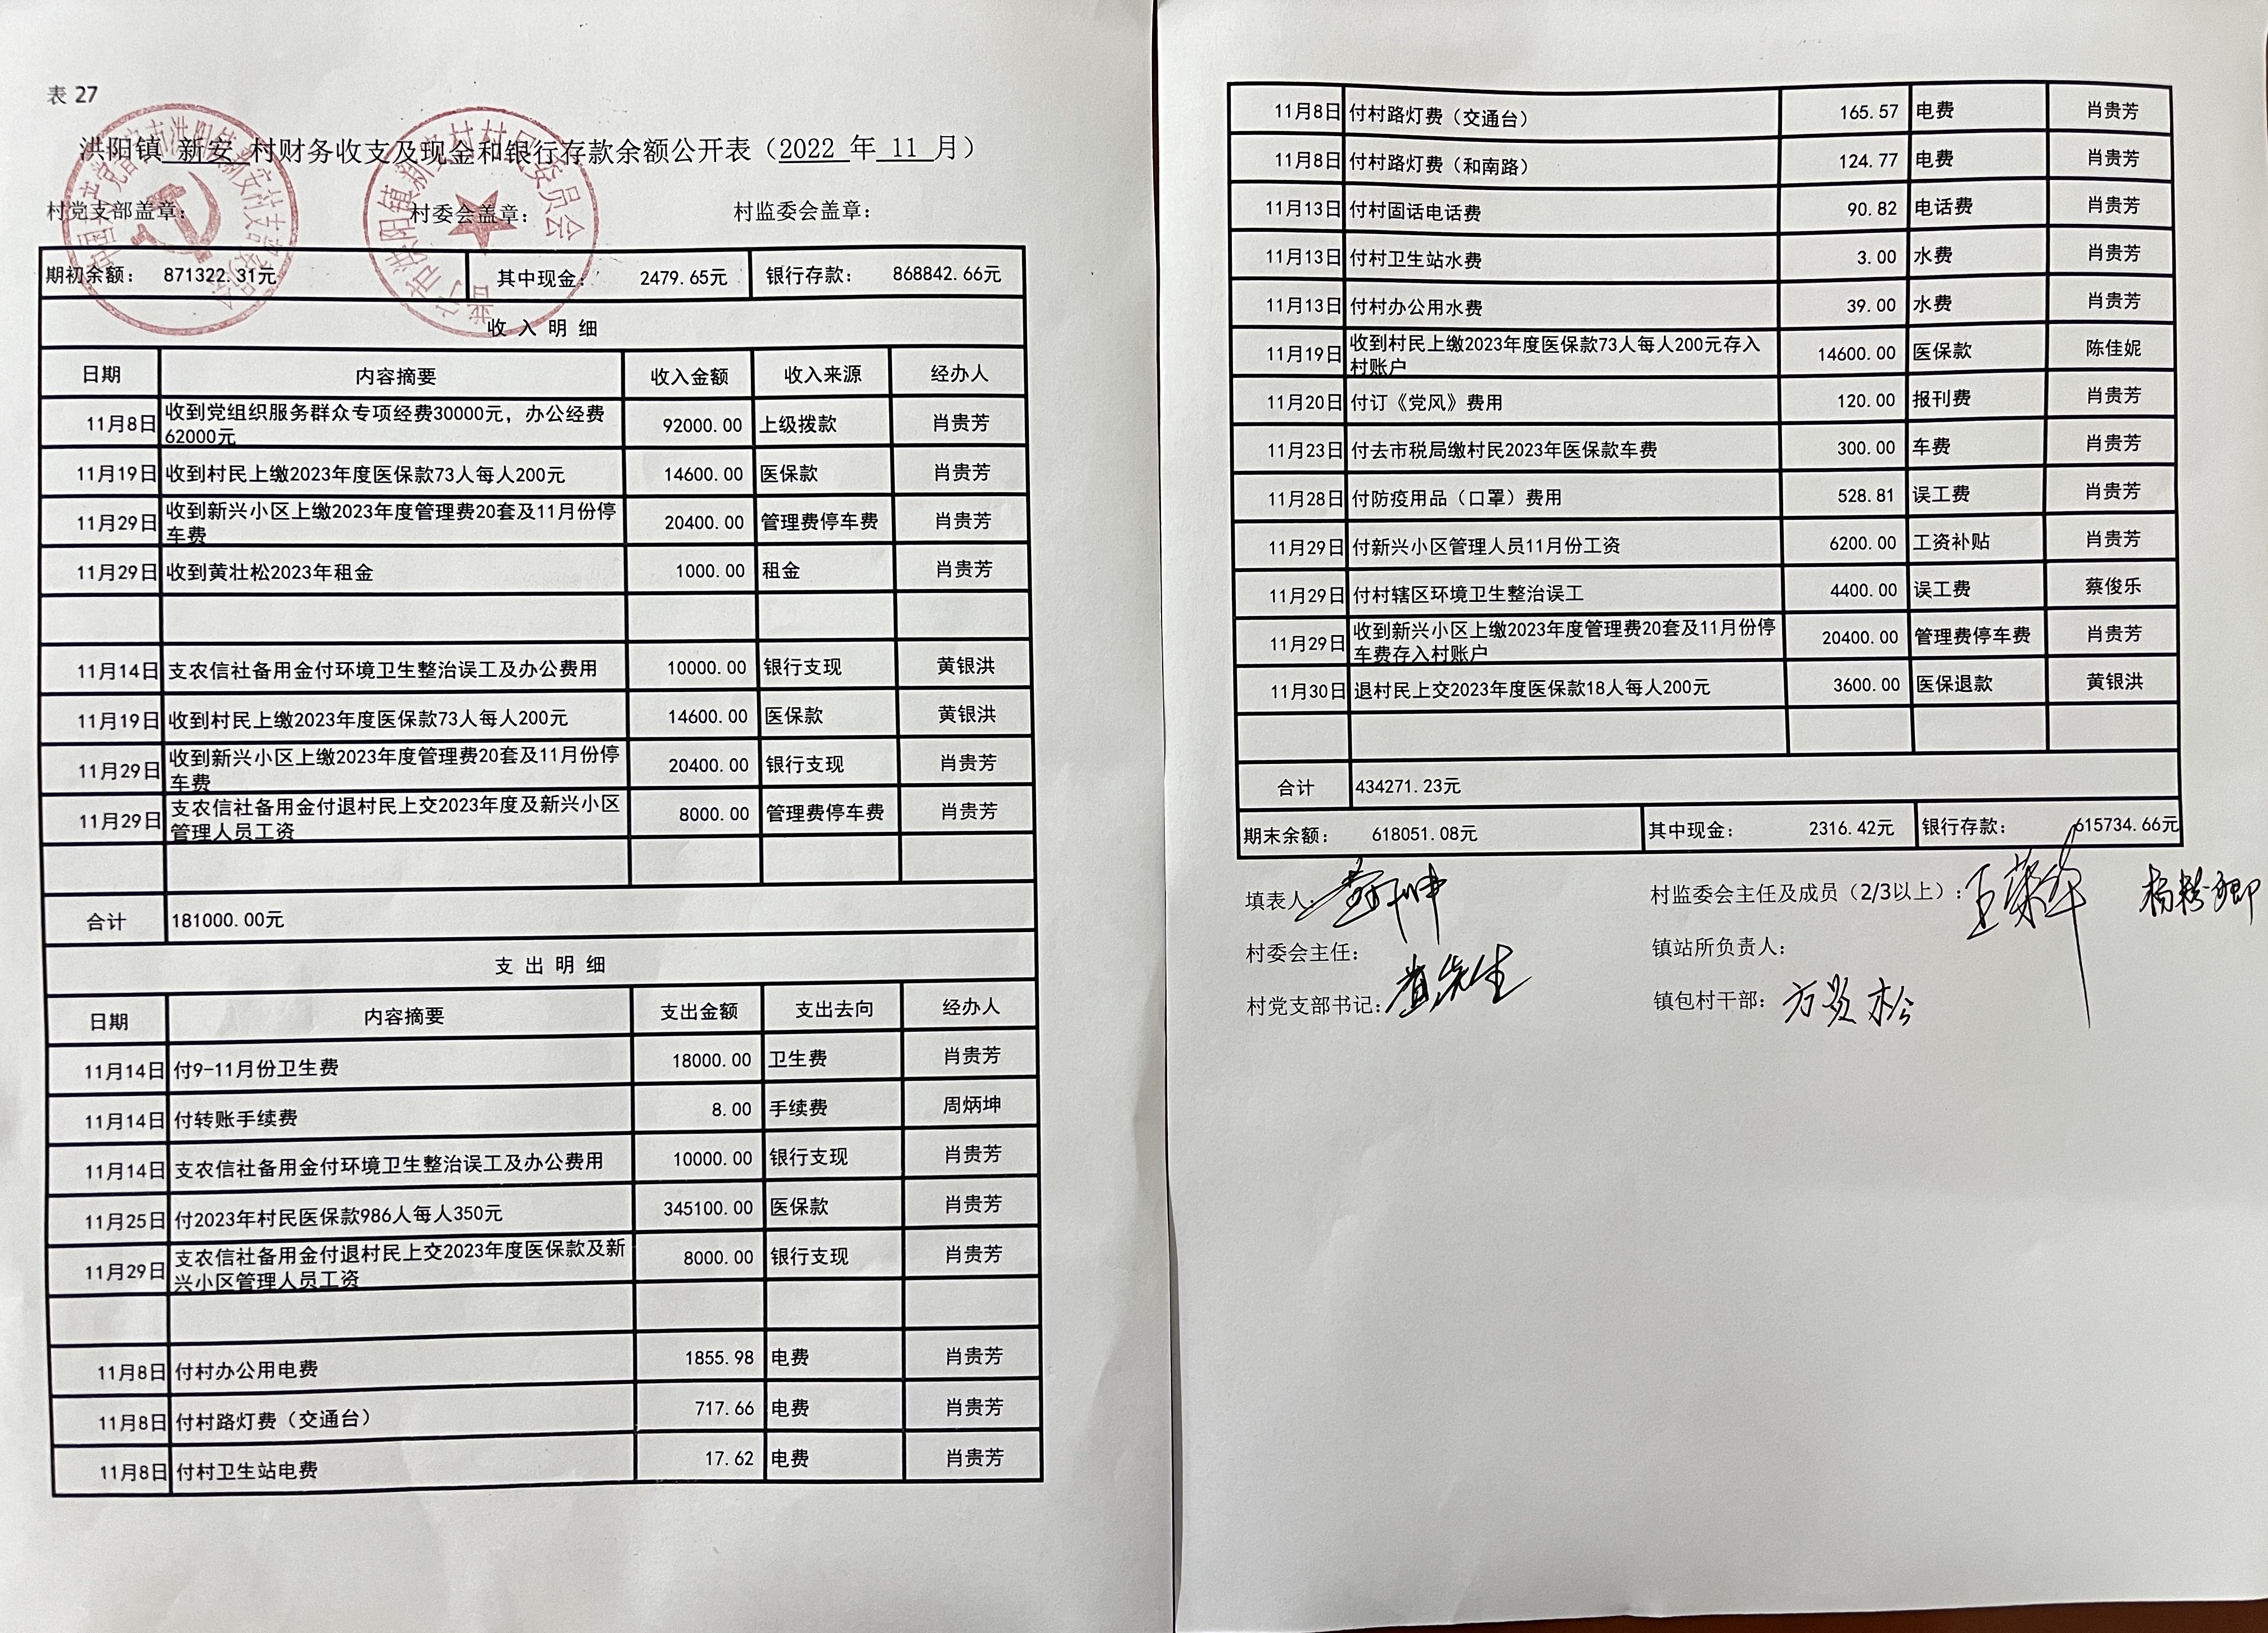 表 27
洪阳镇 新安 村财务收支及现金和银行存款余额公开表（2022 年 11 月）
村党支部盖章： 村委会盖章： 村监委会盖章：
期初余额： 871322.31元 其中现金： 2479.65元 银行存款： 868842.66元
收 入 明 细
日期 内容摘要 收入金额 收入来源 经办人
11月8日 收到党组织服务群众专项经费30000元，办公经费 92000.00 上级拨款 肖贵芳
62000元
11月19日 收到村民上缴2023年度医保款73人每人200元 14600.00 医保款 肖贵芳
11月29日 收到新兴小区上缴2023年度管理费20套及11月份停 20400.00 管理费停车费 肖贵芳
车费
11月29日 收到黄壮松2023年租金 1000.00 租金 肖贵芳
11月14日 支农信社备用金付环境卫生整治误工及办公费用 10000.00 银行支现 黄银洪
11月19日 收到村民上缴2023年度医保款73人每人200元 14600.00 医保款 黄银洪
11月29日 收到新兴小区上缴2023年度管理费20套及11月份停 20400.00 银行支现 肖贵芳
车费
11月29日 支农信社备用金付退村民上交2023年度及新兴小区 8000.00 管理费停车费 肖贵芳
管理人员工资
合计 181000.00元
支 出 明 细
日期 内容摘要 支出金额 支出去向 经办人
11月14日 付9-11月份卫生费 18000.00 卫生费 肖贵芳
11月14日 付转账手续费 8.00 手续费 周炳坤
11月14日 支农信社备用金付环境卫生整治误工及办公费用 10000.00 银行支现 肖贵芳
11月25日 付2023年村民医保款986人每人350元 345100.00 医保款 肖贵芳
11月29日 支农信社备用金付退村民上交2023年度医保款及新 8000.00 银行支现 肖贵芳
兴小区管理人员工资
11月8日 付村办公用电费 1855.98 电费 肖贵芳
11月8日 付村路灯费（交通台） 717.66 电费 肖贵芳
11月8日 付村卫生站电费 17.62 电费 肖贵芳
11月8日 付村路灯费（交通台） 165.57 电费 肖贵芳
11月8日 付村路灯费（和南路） 124.77 电费 肖贵芳
11月13日 付村固话电话费 90.82 电话费 肖贵芳
11月13日 付村卫生站水费 3.00 水费 肖贵芳
11月13日 付村办公用水费 39.00 水费 肖贵芳
11月19日 收到村民上缴2023年度医保款73人每人200元存入 14600.00 医保款 陈佳妮
村账户
11月20日 付订《党风》费用 120.00 报刊费 肖贵芳
11月23日 付去市税局缴村民2023年医保款车费 300.00 车费 肖贵芳
11月28日 付防疫用品（口罩）费用 528.81 误工费 肖贵芳
11月29日 付新兴小区管理人员11月份工资 6200.00 工资补贴 肖贵芳
11月29日 付村辖区环境卫生整治误工 4400.00 误工费 蔡俊乐
11月29日 收到新兴小区上缴2023年度管理费20套及11月份停 20400.00 管理费停车费 肖贵芳
车费存入村账户
11月30日 退村民上交2023年度医保款18人每人200元 3600.00 医保退款 黄银洪
合计 434271.23元
期末余额： 618051.08元 其中现金： 2316.42元 银行存款： 615734.66元
填表人： 村监委会主任及成员（2/3以上）：
村委会主任： 镇站所负责人：
村党支部书记： 镇包村干部：